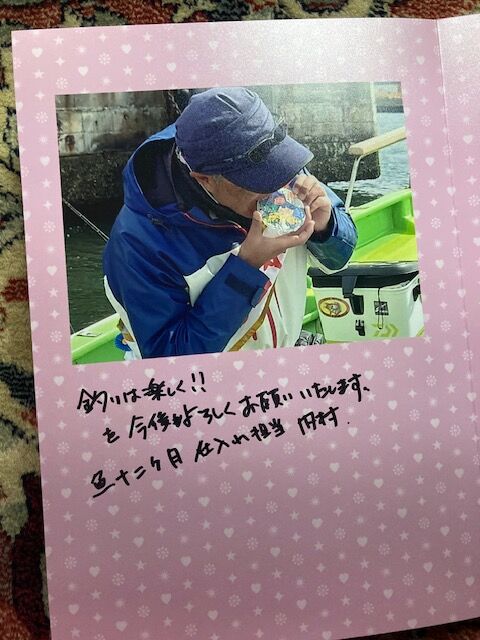 釣りは楽しく!!
を今後もよろしくお願いいたします、
魚十二ヶ月 仕入れ担当 円村.